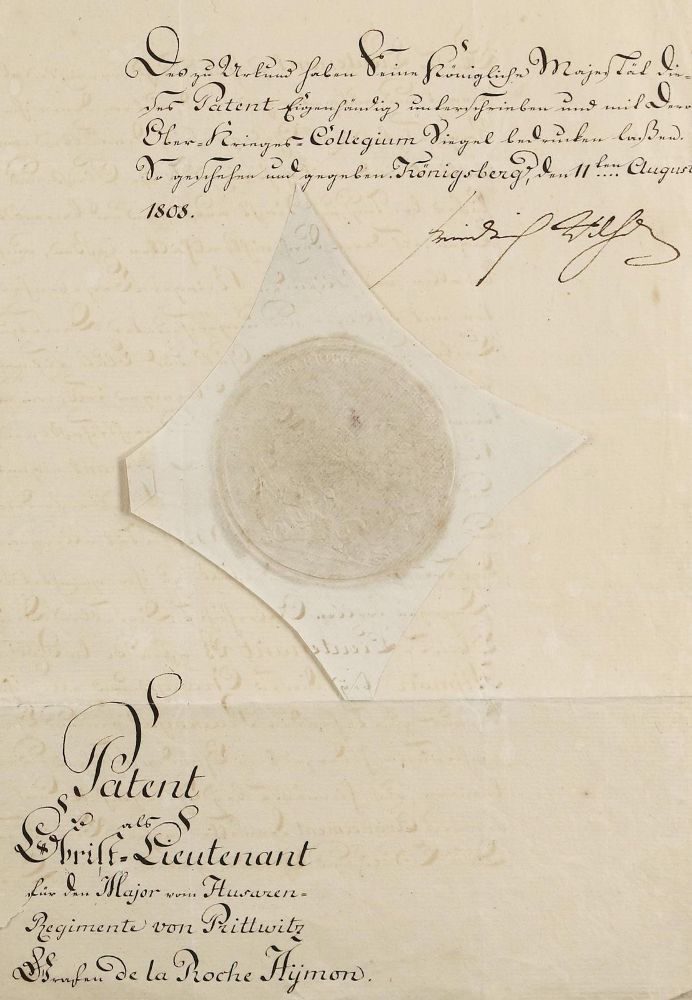 Des zu Urkund haben Seine Königliche Majestät die-
ses Patent Eigenhändig unterschrieben und mit Dero
Ober-Krieges-Collegium Siegel bedrucken laßen.
So geschehen und gegeben. Königsberg, den 11ten August
1808.
Friedrich Wilhelm
Patent
als
Obrist-Lieutenant
für den Major vom Husaren-
Regimente von Prittwitz
Grafen de la Roche Aymon.